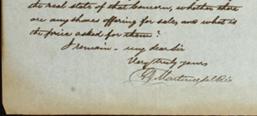 the real state of that concern, whether there
are any shares offering for sale, and what is
the price asked for them?
I remain - my dear sir
Very truly yours